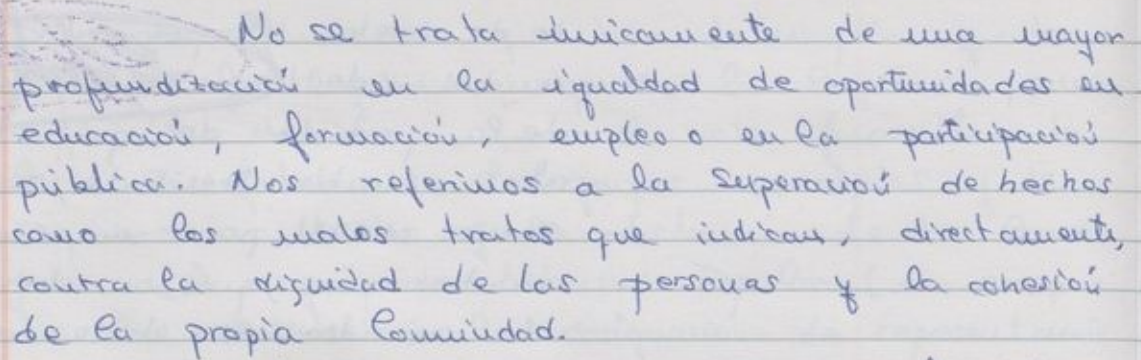 No se trata únicamente de una mayor
profundización en la igualdad de oportunidades en
educación, formación, empleo o en la participación
pública. Nos referimos a la Superación de hechos
como los malos tratos que indican, directamente,
contra la dignidad de las personas y la cohesión
de la propia Comunidad.